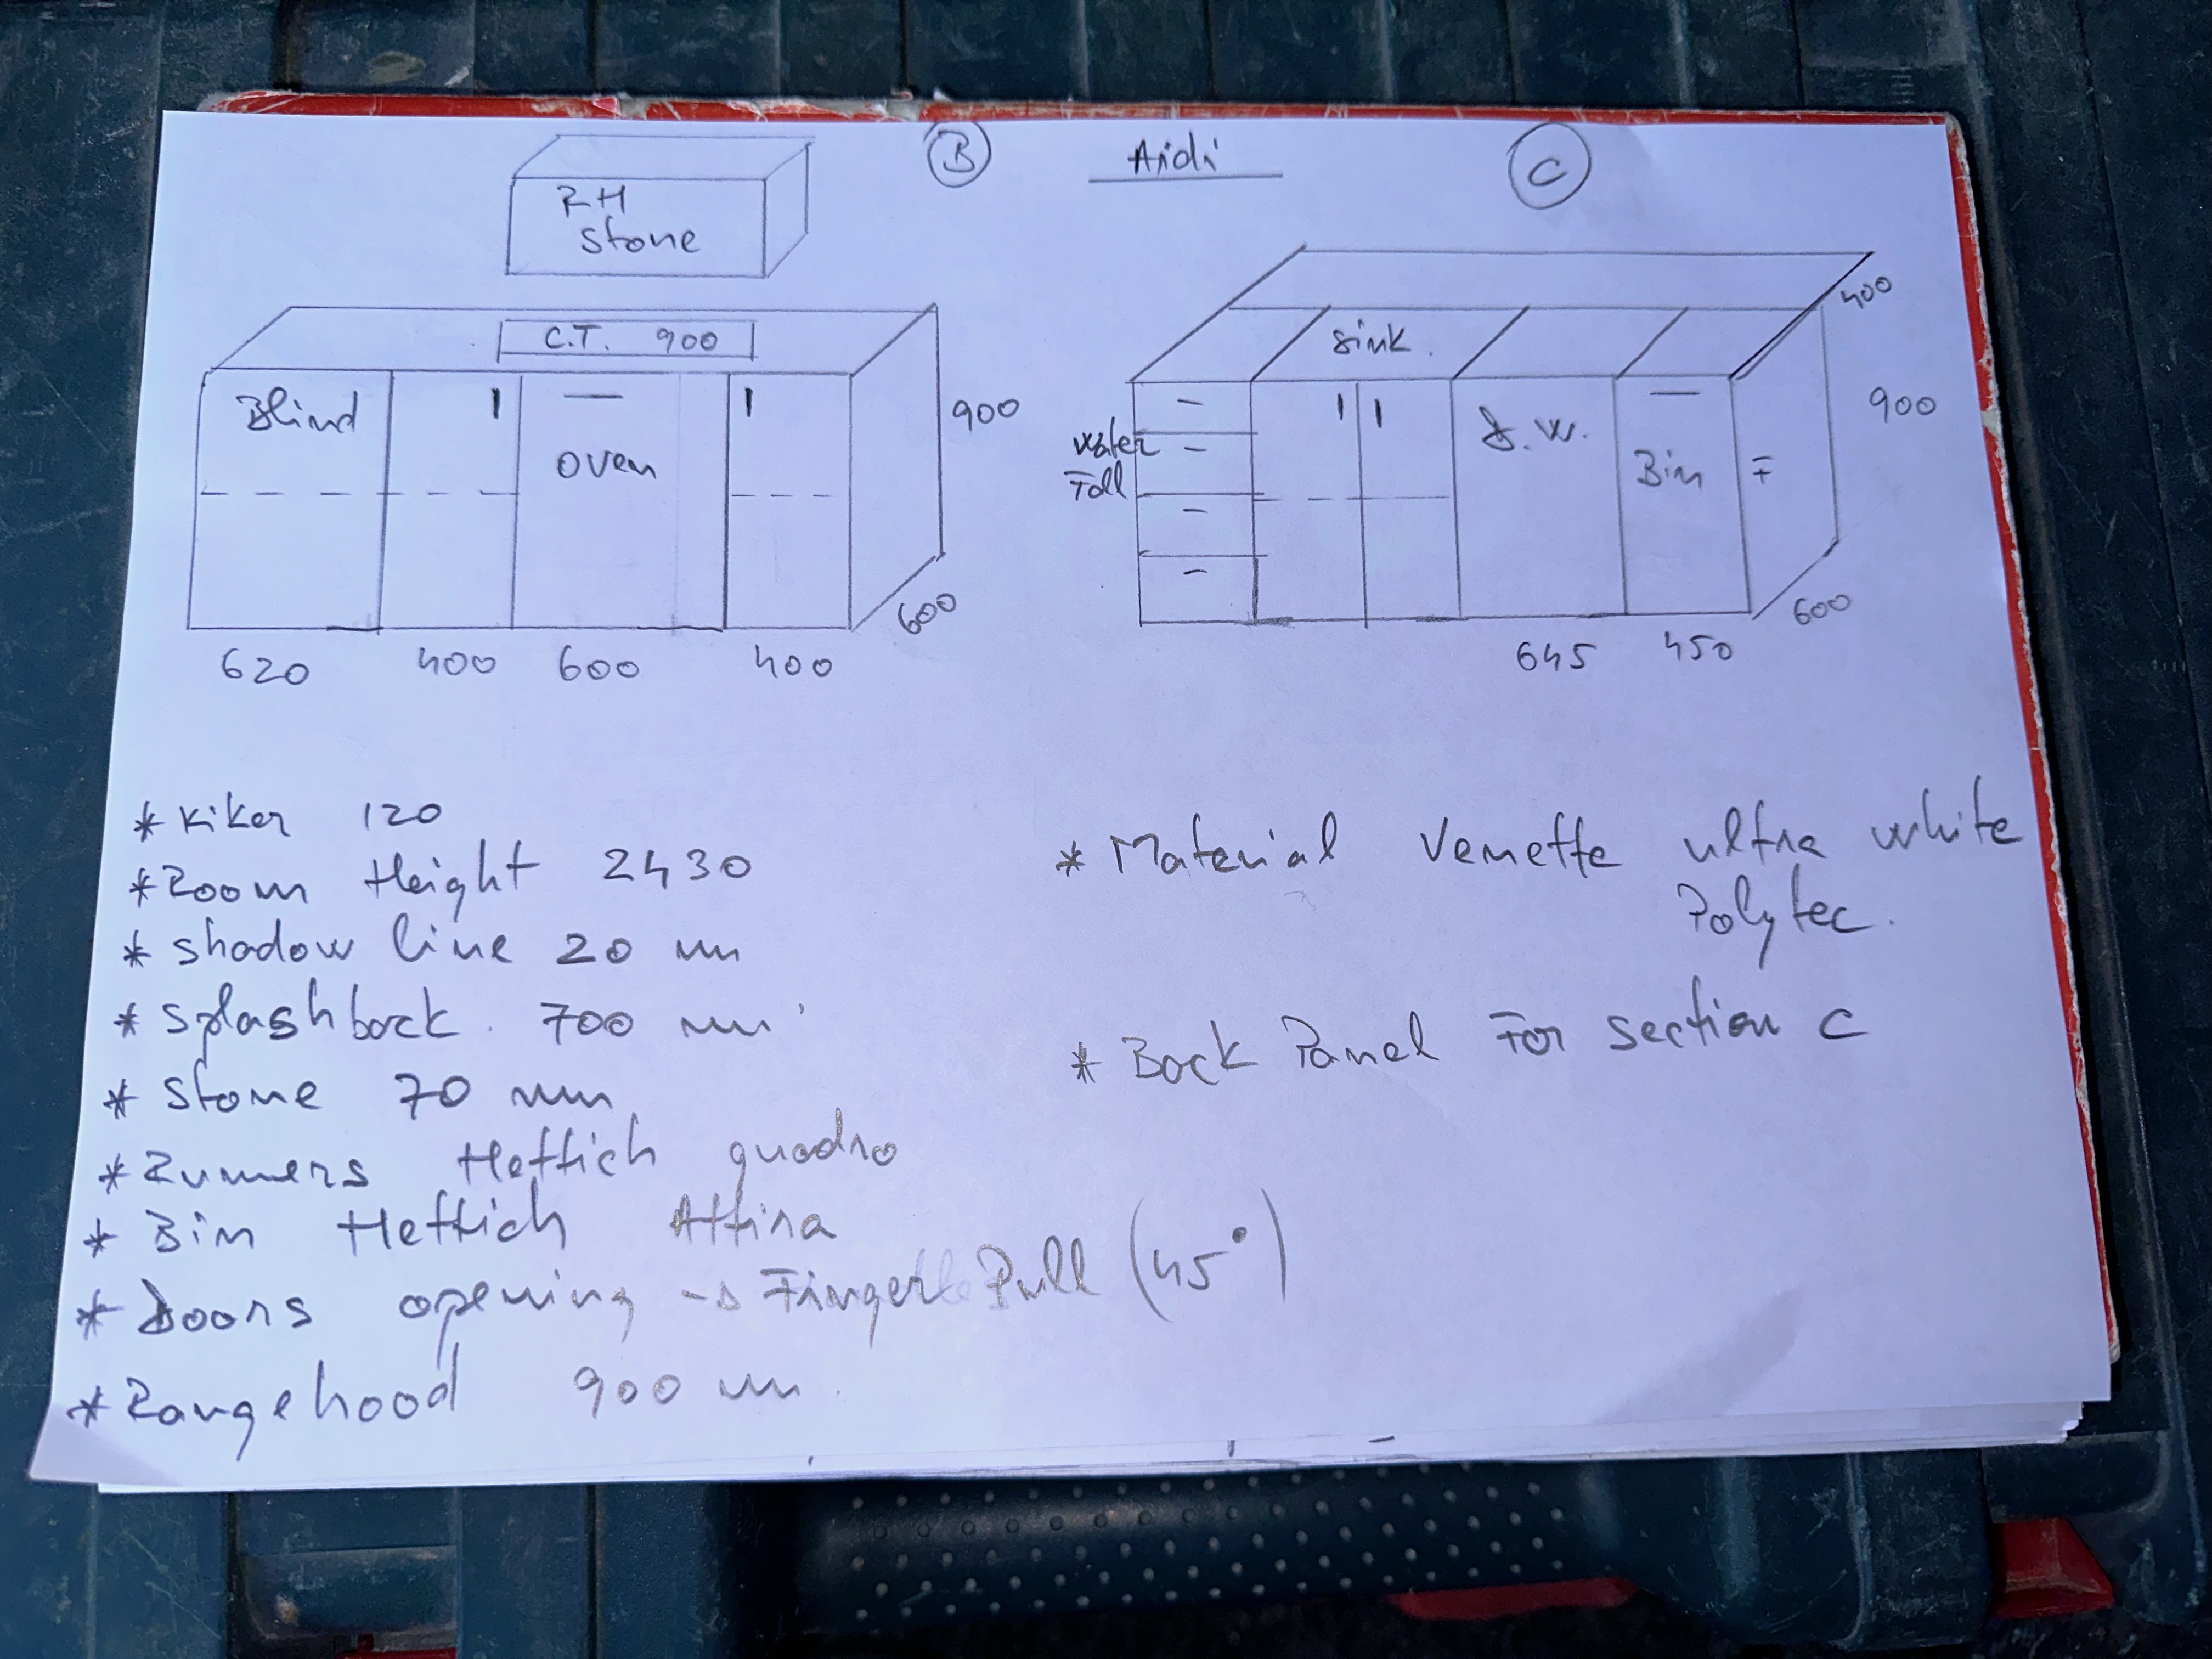 B
Aidi
C
RH
Stone
C.T. 900
Blind
oven
900
600
620 400 600 400
400
sink.
water
Fall
D.W.
Bin
F
900
600
645 450
* Kiker 120
* Room Height 2430
* shadow line 20 mm
* splashback. 700 mm
* Stone 70 mm
* Runners Hettich quadro
* Bin Hettich
* Doors opening → Finger Pull (45°)
* Rangehood 900 mm.
* Material Venette ultra white
Polytec.
* Back Panel For section C